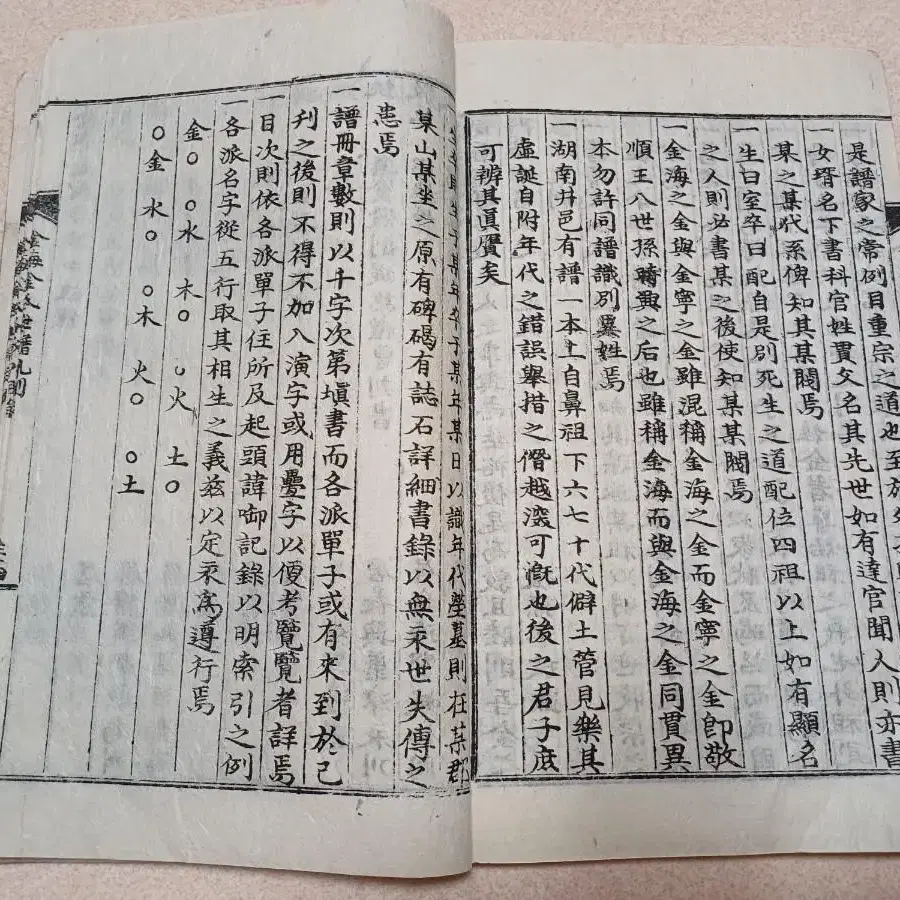 是譜家之常例目重宗之道也至於外
一女壻名下書科官姓貫父名其先世如有達官聞人則亦書
某之某代系俾知其某閥焉
一生曰室卒曰配自是別死生之道配位四祖以上如有顯名
之人則必書某之後使知某某閥焉
一金海之金與金寧之金雖混稱金海之金而金寧之金卽敬
順王八世孫時興之后也雖稱金海而與金海之金同貫異
本勿許同譜識別異姓焉
一湖南井邑有譜一本上自鼻祖下六七十代僻土管見樂其
虛誕自附年代之錯誤擧措之僭越深可慨也後之君子庶
可辨其眞贋矣
某年某日以識年代塋墓則在某郡
某山某坐之原有碑碣有誌石詳細書錄以無來世失傳之
患焉
一譜冊章數則以千字次第塡書而各派單子或有來到於已
刋之後則不得不加入演字或用疊字以便考覽覽者詳焉
一目次則依各派單子住所及起頭諱啣記錄以明索引之例
一各派名字從五行取其相生之義玆以定來寓遵行焉
金○ ○水 木○ ○火 土○
○金 水○ ○木 火○ ○土